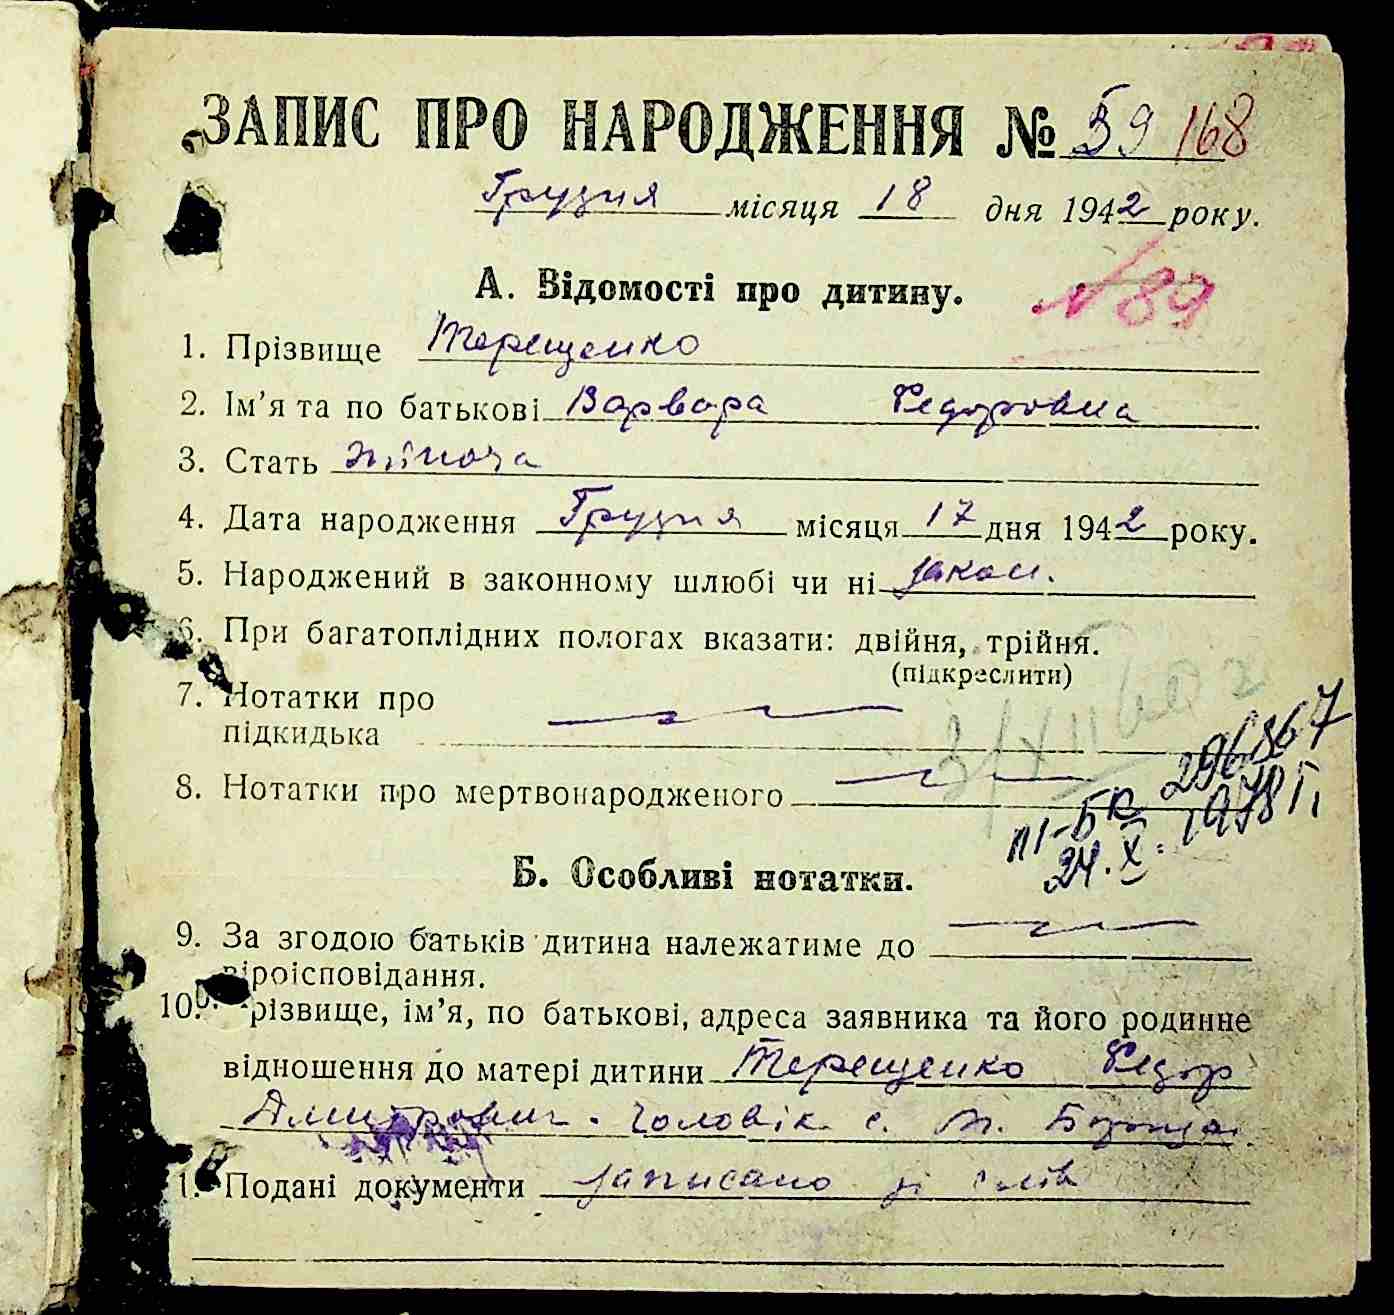 ЗАПИС ПРО НАРОДЖЕННЯ № 59 168
Грудня місяця 18 дня 1942 року.
А. Відомості про дитину.
№89
1. Прізвище Терещенко
2. Ім'я та по батькові Варвара Федоровна
3. Стать жіноча
4. Дата народження Грудня місяця 17 дня 1942 року.
5. Народжений в законному шлюбі чи ні закон.
6. При багатоплідних пологах вказати: двійня, трійня.
(підкреслити)
7. Нотатки про
підкидька
296867
8. Нотатки про мертвонародженого
III-БК
24.X.1978 Г.
Б. Особливі нотатки.
9. За згодою батьків дитина належатиме до
віроісповідання.
10. Прізвище, ім'я, по батькові, адреса заявника та його родинне
відношення до матері дитини Терещенко Федор
Дмитрович. чоловік с. М.
1. Подані документи записано зі слів